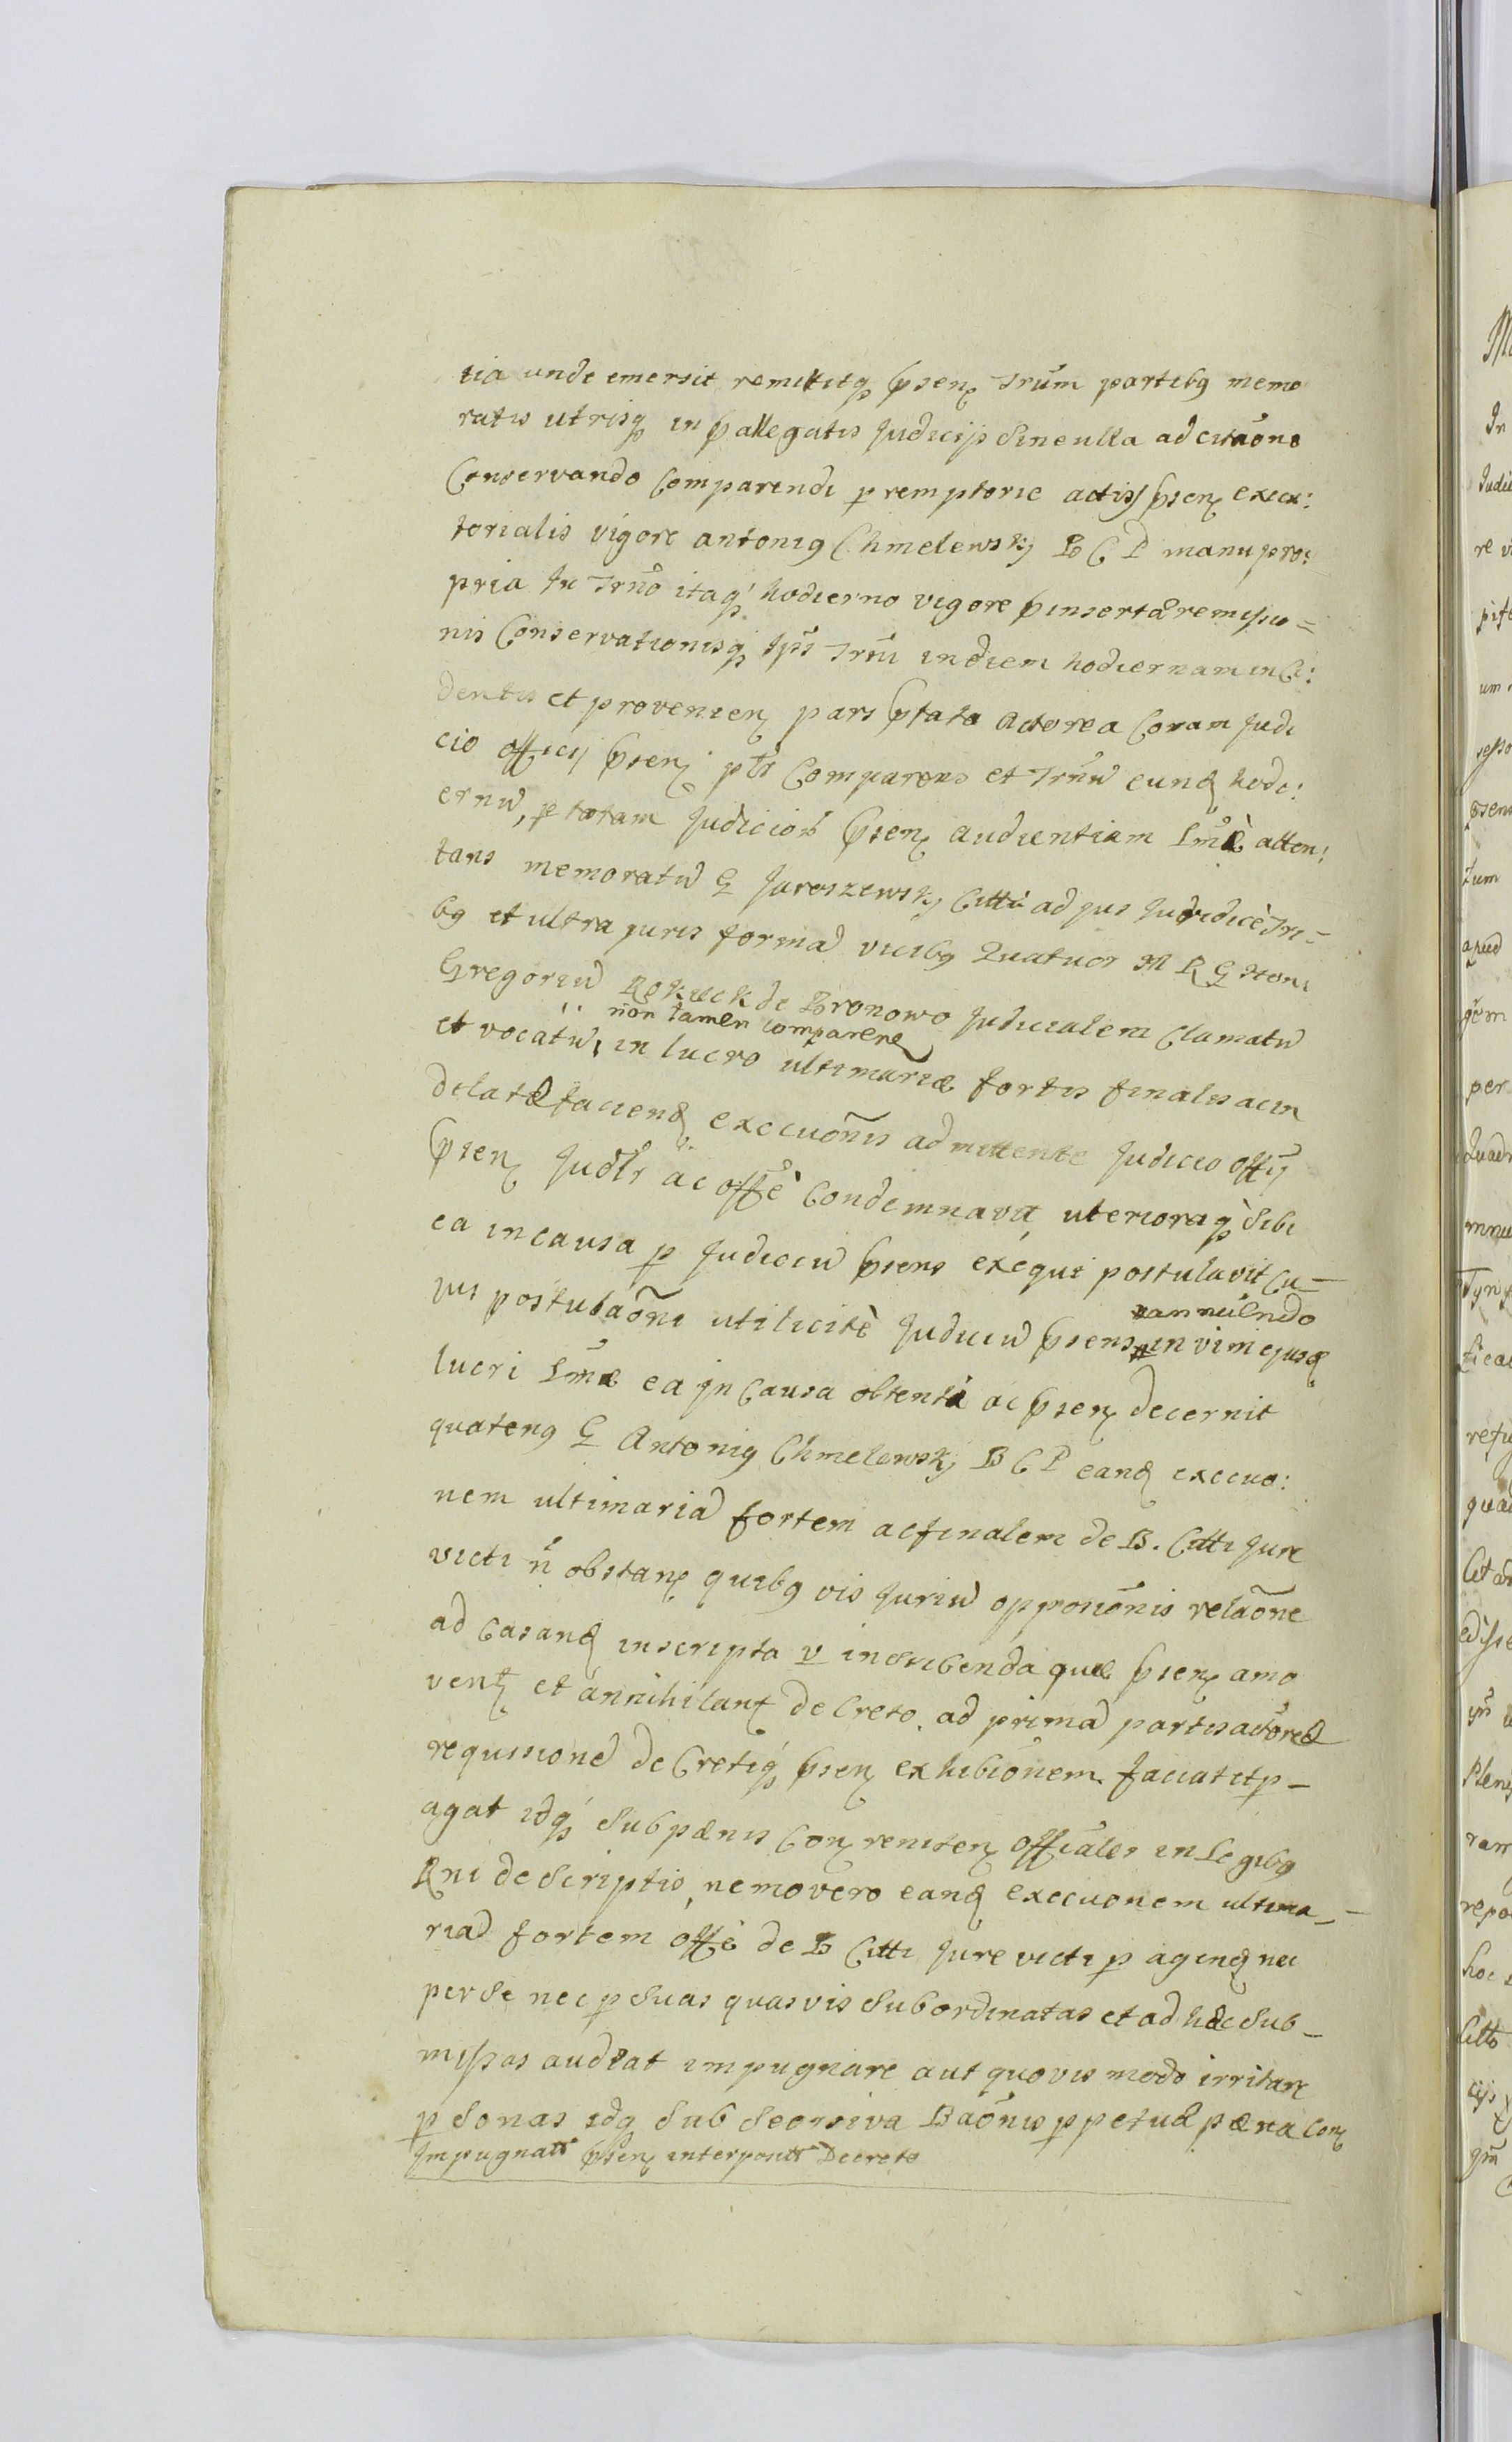 tia unde emersit remittitq psen Trum partibq memo
ratis utrisq in pallegatis Judicijs sine ulla adcitaone
Conservando Comparendi premptorie actis psen execu:
torialis vigore antoniq Chmelewsky B C P manu pro:
pria In Trno itaq hodierno vigore pinsertæ remissio=
nis Conservationisq Ipsi Trni in diem hodiernam inCi:
dentis et provenien pars ptata Actorea Coram Judi
cio officij psen ptr Comparens et Trnu eund hodi:
ernu, p totam Judicior psen audientiam Lmæ atten:
tans memoratu G Jaroszewsky Citti ad jus Juridicè Tri=
bq et ultra juris formã vicibq Quatuor M R G Honi
Gregoriu Rokieck de Bronowo Judicialem Clamatu
et vocatu, non tamen comparen in lucro ultimariæ fortis finalis ac in
delatæ faciend execuonis admittente Judicio offij
psen Judlr ac offè Condemnavit ulterioraq sibi
ea in causa p Judiciu psens exequi postulavit Cu-
jus postulaoni utilicitè Judiciu psens annuendo in vim ejusd
lucri Lmæ ea in Causa obtentà ac psen decernit
quatenq G Antoniq Chmelewsky B C P eand execuo:
nem ultimariã fortem ac finalem de B. Citti Jure
victi n obstan quibq vis Juriu opposionis relaone
ad Casand inscripta v inscribenda quæ psen amo
vent et annihilant deCreto ad primã partis actoreæ
requisionê deCretiq psen exhibionem faciat et p-
agat idq sub pænis Con reniten officiales in Legibq
Rni descriptis, nemo vero eand execuonem ultima-
riã fortem offè de B Citti Jure victi p agend nec
per se nec p suas quasvis subordinatas et ad hæc sub-
missas audeat impugnare aut quovis modo irritare
p sonas idq sub seorsiva Baonis ppetuæ pæna Con
Impugnatt psen interpositt Decreto